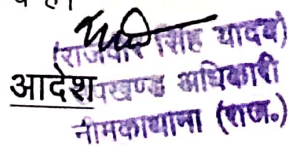 (राजवीर सिंह यादव)
आदेश
उपखण्ड अधिकारी
नीमकाथाना (राज.)